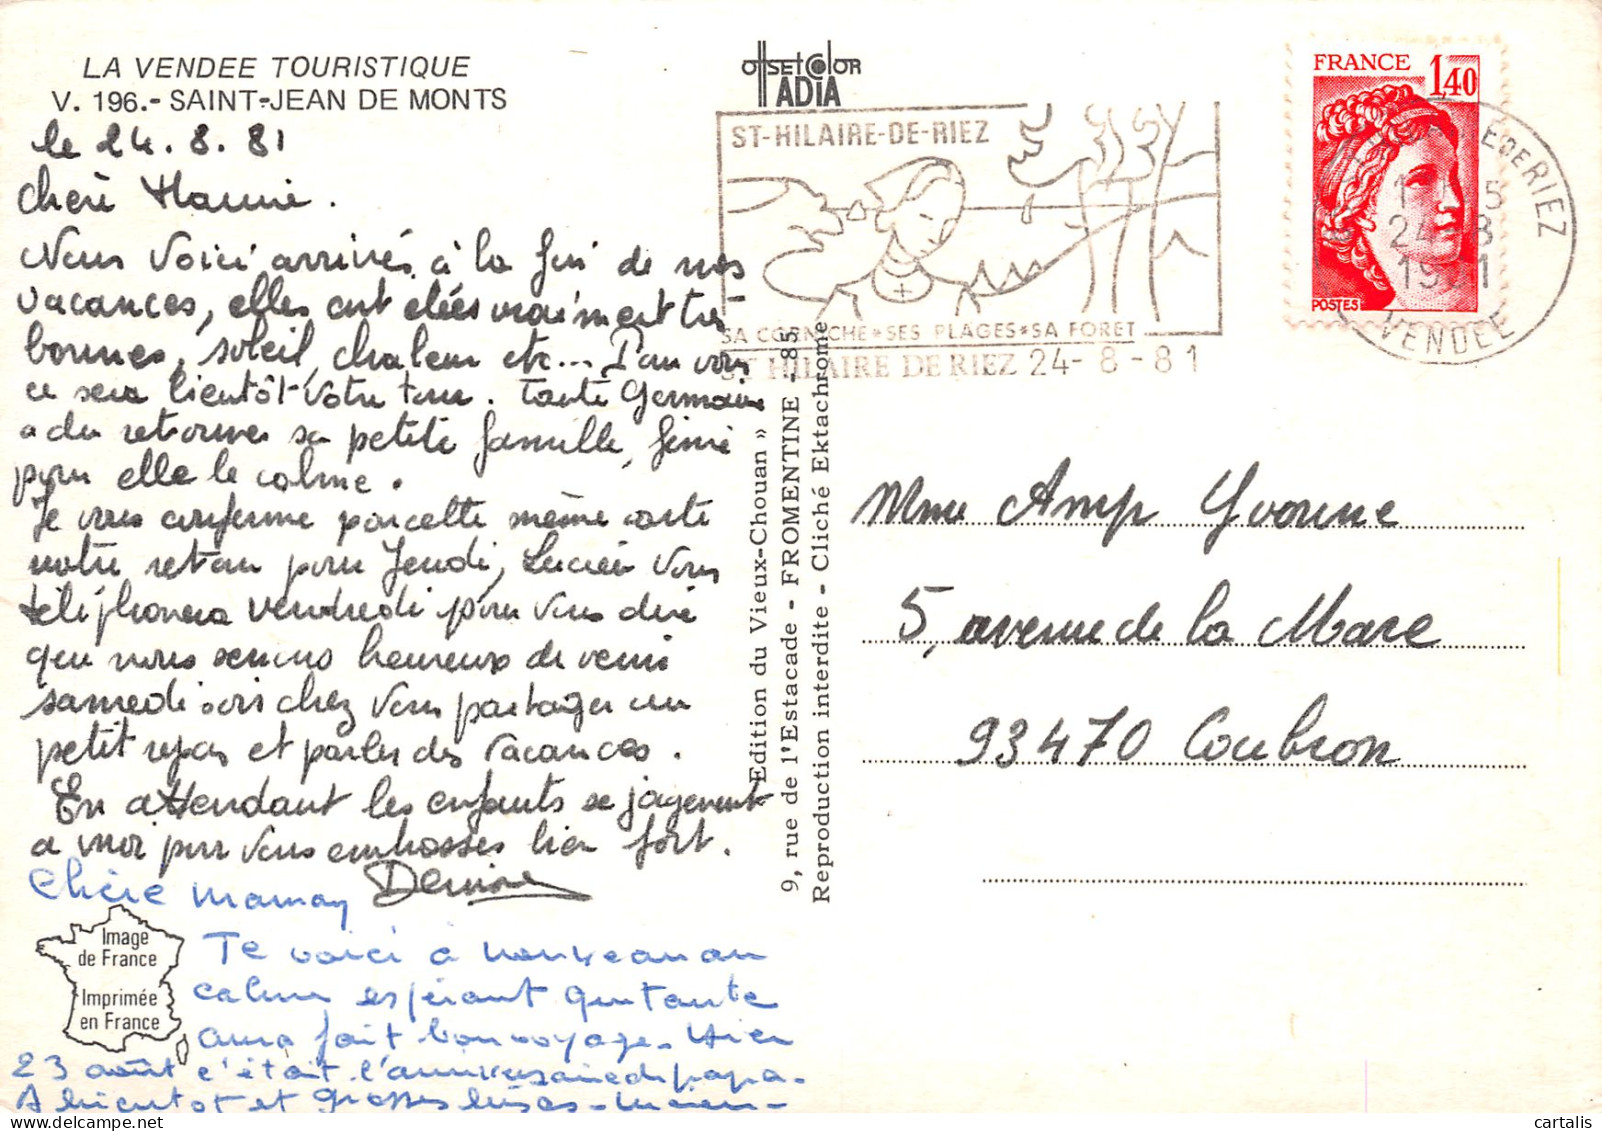 LA VENDEE TOURISTIQUE
V. 196.- SAINT-JEAN DE MONTS
le 24.8.81
Chère Mamie.
Nous voici arrivés à la fin de nos
vacances, elles ont étées vraiment très
bonnes, soleil, chaleur etc... Pour vous
ce sera bientôt votre tour. Tante Germaine
a du retourner sa petite famille, fini
pour elle le calme.
Je vous confirme par cette même carte
notre retour pour Jeudi, Lucien vous
téléphonera vendredi pour vous dire
que nous serions heureux de venir
samedi soir chez vous partager un
petit repas et parler des vacances.
En attendant les enfants se joignent
a moi pour vous embrasser bien fort.
Denise
Chère maman
Te voici à nouveau au
calme espérant que tante
aura fait bon voyage. Hier
23 août c'était l'anniversaire de papa.
A bientot et grosses bises - Lucien -
Image
de France
Imprimée
en France
OffsetColor
ADIA
ST-HILAIRE-DE-RIEZ
SA CORNICHE*SES PLAGES*SA FORET
ST HILAIRE DE RIEZ 24-8-81
FRANCE 1,40
POSTES
E DE RIEZ
24-8
1981
VENDEE
Edition du Vieux-Chouan »
9, rue de l'Estacade - FROMENTINE - 85
Reproduction interdite - Cliché Ektachrome
Mme Amp Yvonne
5, avenue de la Mare
93470 Coubron
cartalis
delcampe.net